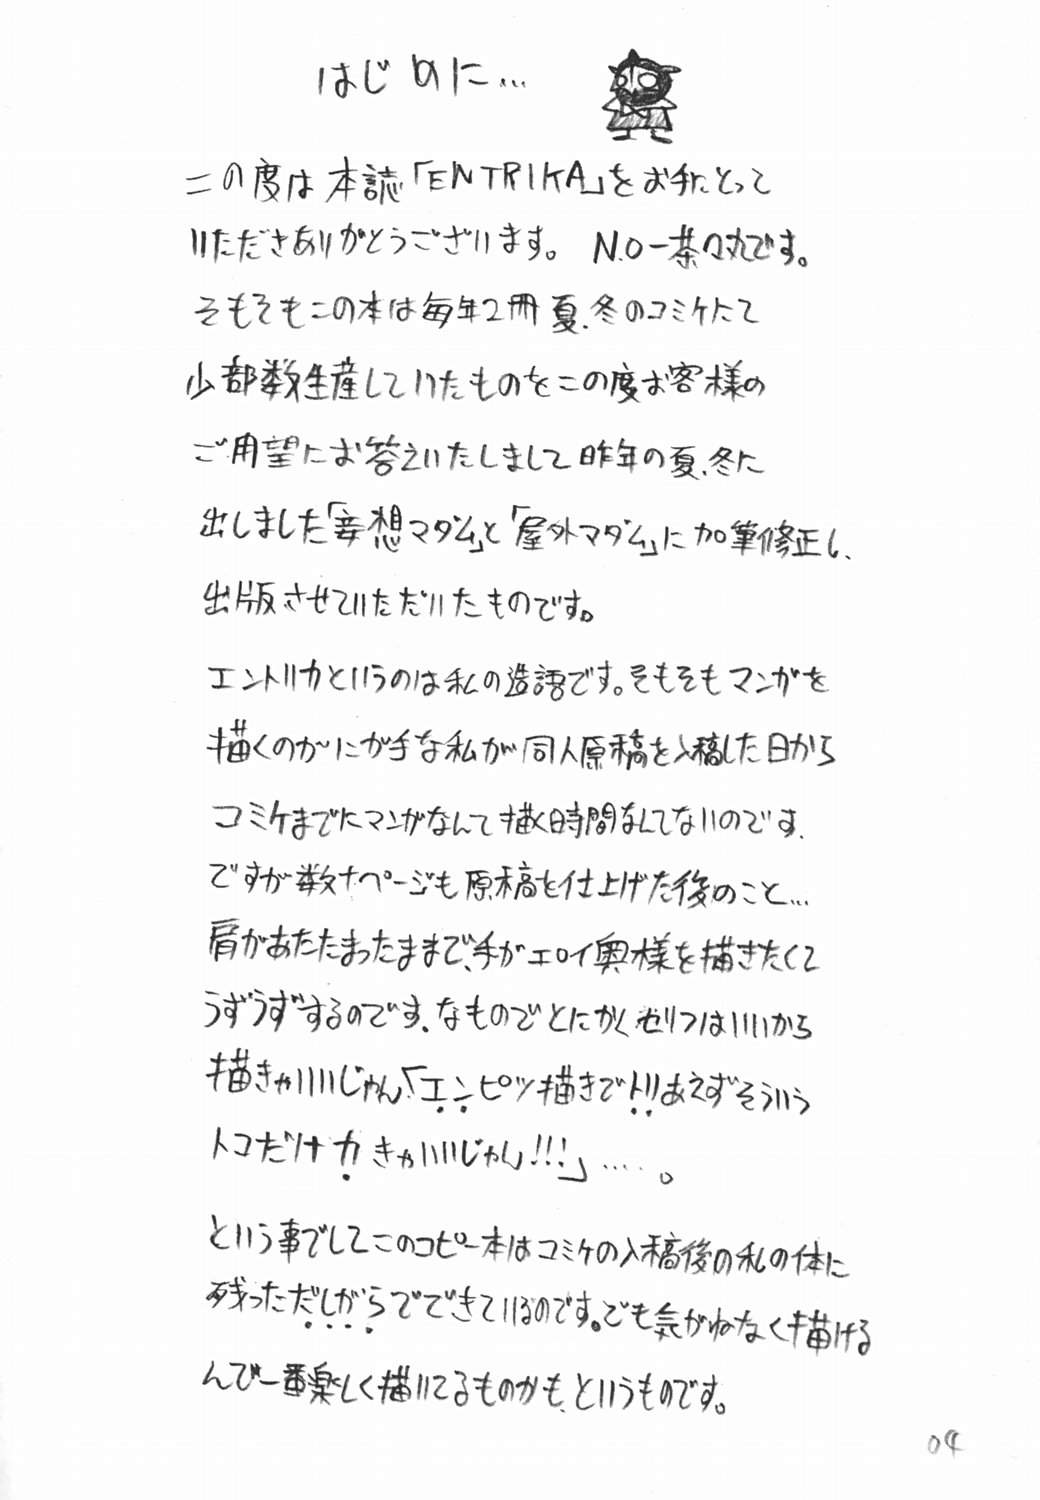 はじめに…
この度は本誌「ENTRIKA」をお手にとって
いただきありがとうございます。 N.O－茶々丸です。
そもそもこの本は毎年2冊夏、冬のコミケにて
少部数生産していたものをこの度お客様の
ご用望にお答えいたしまして昨年の夏、冬に
出しました「妄想マダム」と「屋外マダム」に加筆修正し、
出版させていただいたものです。
エントリカというのは私の造語です。そもそもマンガを
描くのがにが手な私が同人原稿を入稿した日から
コミケまでにマンガなんて描く時間なんてないのです、
ですが数十ページも原稿を仕上げた後のこと…
肩があたたまったままで、手がエロイ奥様を描きたくて
うずうずするのです、なものでとにかくセリフはいいから
描きゃいいじゃん、「エンピツ描きでトリあえずそういう
トコだけカきゃいいじゃん!!!」……。
という事でしてこのコピー本はコミケの入稿後の私の体に
残っただしがらでできているのです。でも気がねなく描ける
んで一番楽しく描いてるものかも、というものです。
04